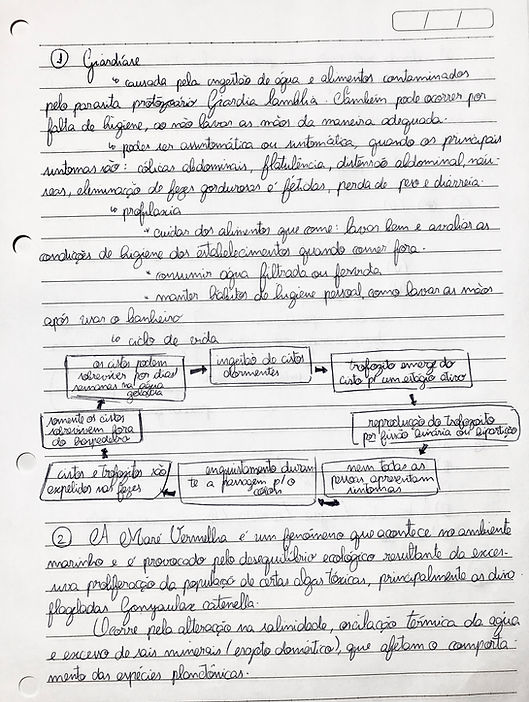 1 Giardíase
↳ causada pela ingestão de água e alimentos contaminados
pelo parasita protozoário Giardia lamblia. Também pode ocorrer por
falta de higiene, ao não lavar as mãos da maneira adequada.
↳ poder ser assintomática ou sintomática, quando os principais
sintomas são: cólicas abdominais, flatulência, distensão abdominal, náu-
seas, eliminação de fezes gordurosas e fétidas, perda de peso e diarreia
↳ profilaxia
* cuidar dos alimentos que come: lavar bem e avaliar as
condições de higiene dos estabelecimentos quando comer fora.
* consumir água filtrada ou fervida
* manter hábitos de higiene pessoal, como lavar as mãos
após usar o banheiro
↳ ciclo de vida
os cistos podem
sobreviver por dias/
semanas na água
gelada
ingestão de cistos
dormentes
trofozoito emerge do
cisto p/ um estágio ativo
reprodução do trofozoito
por fissão binária ou bipartição
nem todas as
pessoas apresentam
sintomas
enquistamento duran-
te a passagem p/ o
cólon
cistos e trofozoitos são
expelidos nas fezes
somente os cistos
sobrevivem fora
do hospedeiro
2 A Maré Vermelha é um fenômeno que acontece no ambiente
marinho e é provocado pelo desequilíbrio ecológico resultante da exces-
siva proliferação da população de certas algas tóxicas, principalmente as dino
flageladas Gonyaulax catenella.
Ocorre pela alteração na salinidade, oscilação térmica da água
e excesso de sais minerais (esgoto doméstico), que afetam o comporta-
mento das espécies planctônicas.